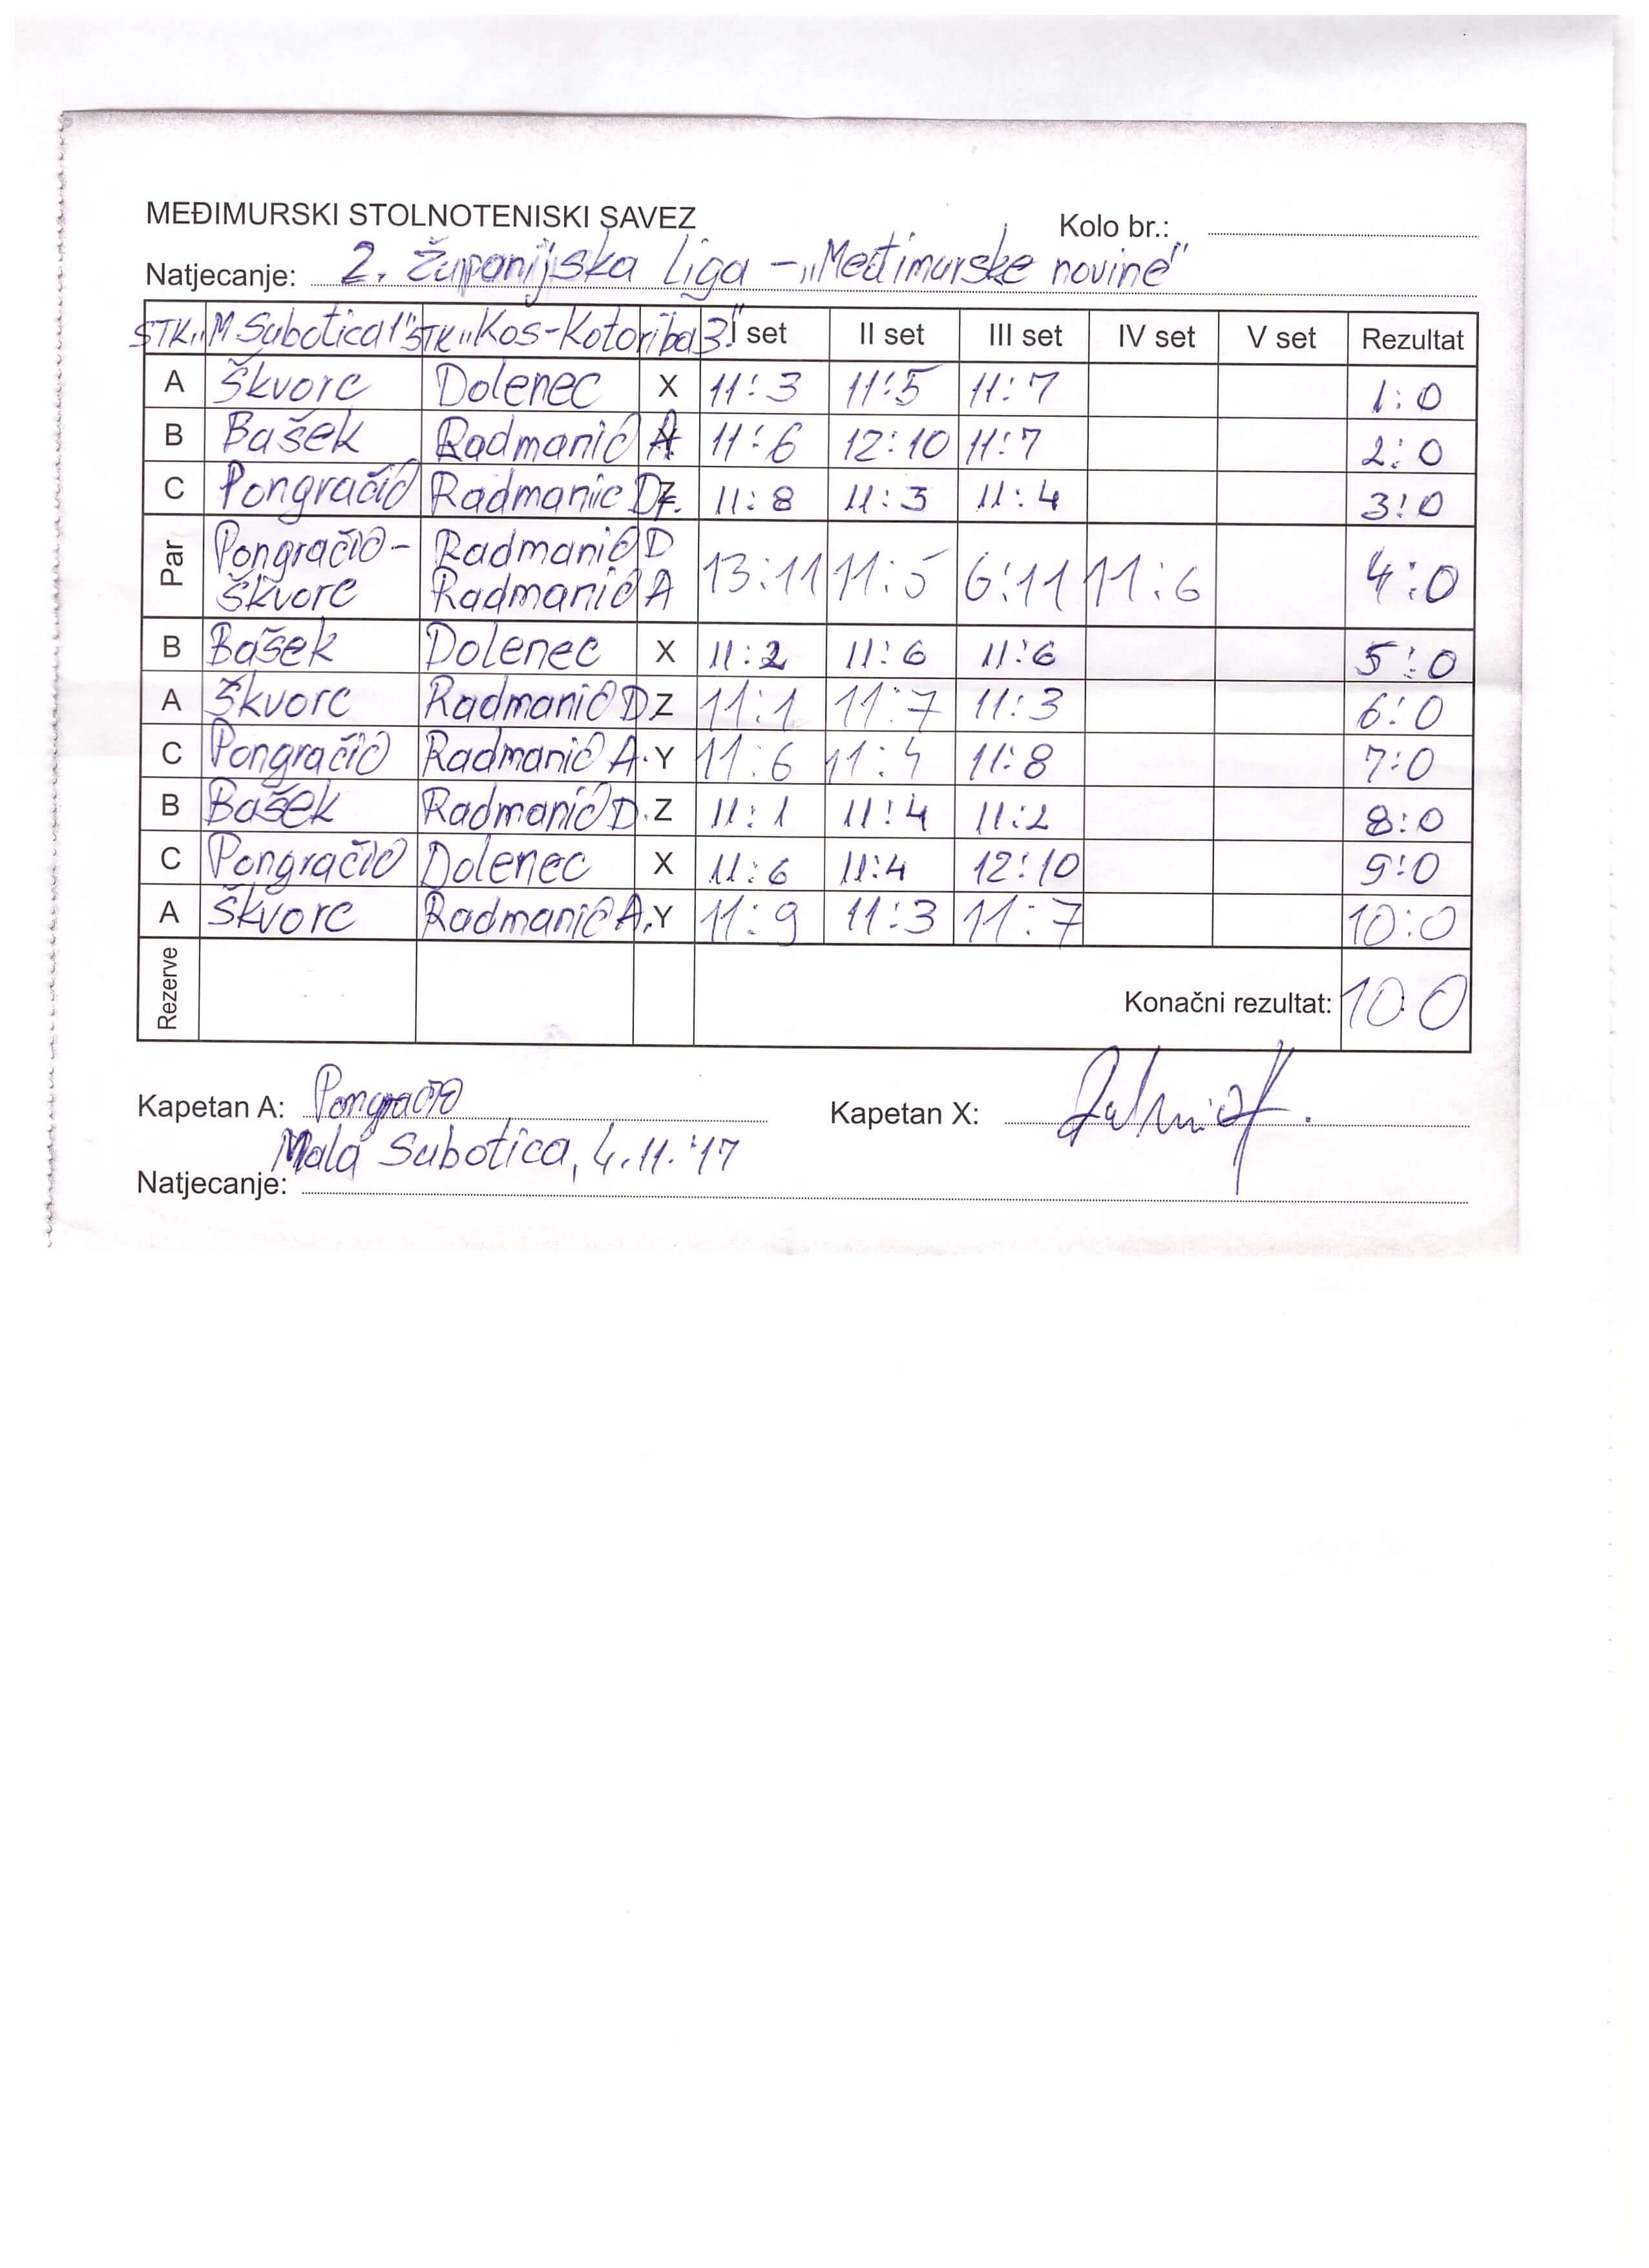 MEĐIMURSKI STOLNOTENISKI SAVEZ Kolo br.:
Natjecanje: 2. Županijska Liga - „Međimurske novine"
STK „M Subotica 1" STK „Kos-Kotoriba 3" I set II set III set IV set V set Rezultat
A Škvorc Dolenec X 11:3 11:5 11:7 1:0
B Bašek Radmanić A 11:6 12:10 11:7 2:0
C Pongračić Radmanic D Z. 11:8 11:3 11:4 3:0
Par Pongračić- Radmanić D 13:11 11:5 6:11 11:6 4:0
Škvorc Radmanić A
B Bašek Dolenec X 11:2 11:6 11:6 5:0
A Škvorc Radmanić D Z 11:1 11:7 11:3 6:0
C Pongračić Radmanić A. Y 11:6 11:4 11:8 7:0
B Bašek Radmanić D. Z 11:1 11:4 11:2 8:0
C Pongračić Dolenec X 11:6 11:4 12:10 9:0
A Škvorc Radmanić A. Y 11:9 11:3 11:7 10:0
Rezerve Konačni rezultat: 10:0
Kapetan A: Pongračić Kapetan X:
Mala Subotica, 4.11.'17
Natjecanje: